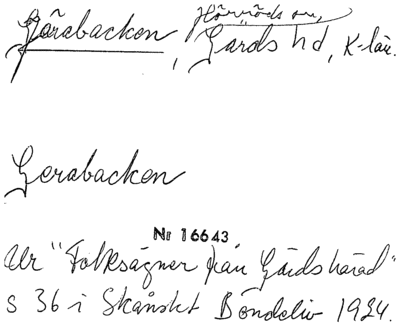 Hörröds sn,
Görabacken, Gärds hd, K-län.
Gerabacken
Nr 16643
Ur "Folksägner från Gärds härad"
s 36 i Skånskt Bondeliv 1924.